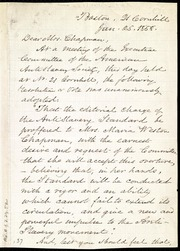 Boston, 21 Cornhill,
Jan. 25, 1858.
Dear Mrs. Chapman,
At a meeting of the Executive
Committee of the American
Anti-Slavery Society, this day held
at No. 21 Cornhill, the following
Resolution or Vote was unanimously
adopted:
That the editorial charge of
the Anti-Slavery Standard be
proffered to Mrs. Maria Weston
Chapman, with the earnest
desire and request of the Committee
that she will accept this overture,
— believing that, in her hands,
the Standard will be conducted
with a vigor and an ability
which cannot fail to extend its
circulation, and give a new and
powerful impulse to the Anti-
Slavery movement.
And, lest you should feel that